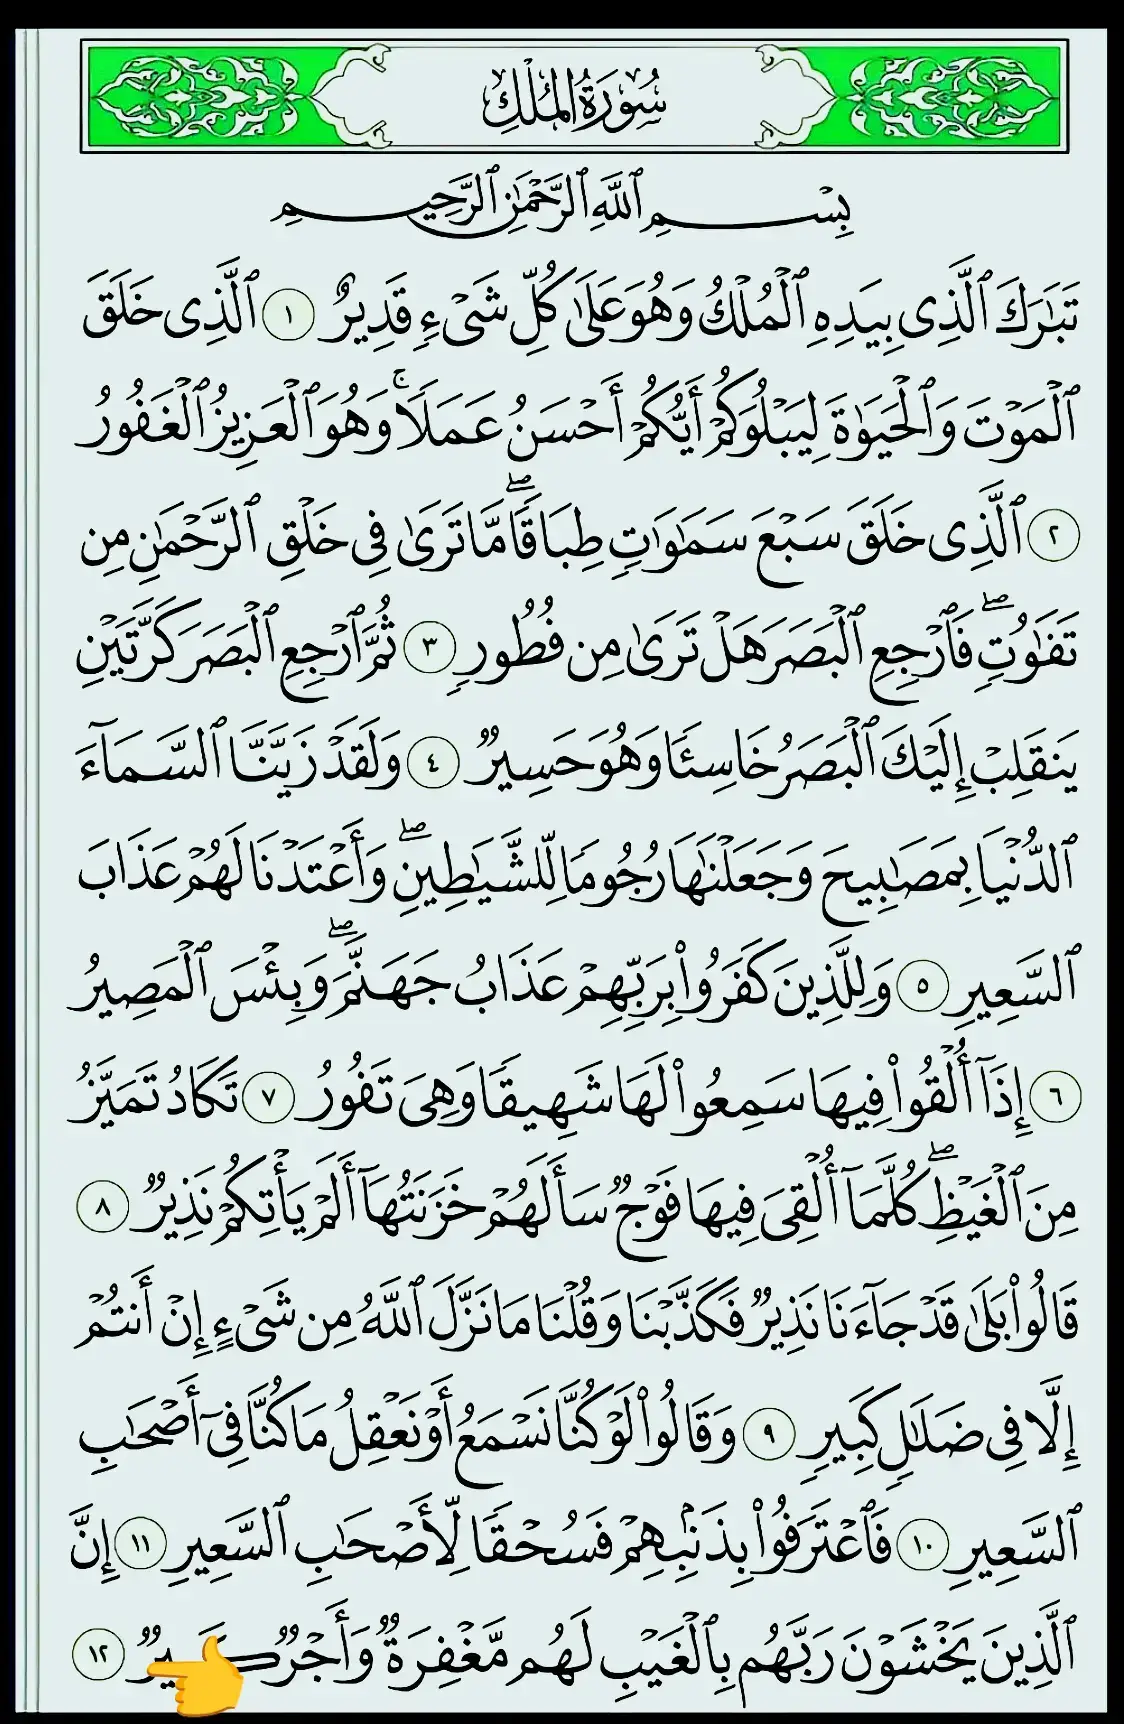 سُورَةُ المُلْكِ
بِسْمِ ٱللَّهِ ٱلرَّحْمَٰنِ ٱلرَّحِيمِ
تَبَٰرَكَ ٱلَّذِى بِيَدِهِ ٱلْمُلْكُ وَهُوَ عَلَىٰ كُلِّ شَىْءٍ قَدِيرٌ ١ ٱلَّذِى خَلَقَ
ٱلْمَوْتَ وَٱلْحَيَوٰةَ لِيَبْلُوَكُمْ أَيُّكُمْ أَحْسَنُ عَمَلًاۚ وَهُوَ ٱلْعَزِيزُ ٱلْغَفُورُ
٢ ٱلَّذِى خَلَقَ سَبْعَ سَمَٰوَٰتٍ طِبَاقًاۖ مَّا تَرَىٰ فِى خَلْقِ ٱلرَّحْمَٰنِ مِن
تَفَٰوُتٍۖ فَٱرْجِعِ ٱلْبَصَرَ هَلْ تَرَىٰ مِن فُطُورٍ ٣ ثُمَّ ٱرْجِعِ ٱلْبَصَرَ كَرَّتَيْنِ
يَنقَلِبْ إِلَيْكَ ٱلْبَصَرُ خَاسِئًا وَهُوَ حَسِيرٌ ٤ وَلَقَدْ زَيَّنَّا ٱلسَّمَآءَ
ٱلدُّنْيَا بِمَصَٰبِيحَ وَجَعَلْنَٰهَا رُجُومًا لِّلشَّيَٰطِينِۖ وَأَعْتَدْنَا لَهُمْ عَذَابَ
ٱلسَّعِيرِ ٥ وَلِلَّذِينَ كَفَرُوا۟ بِرَبِّهِمْ عَذَابُ جَهَنَّمَۖ وَبِئْسَ ٱلْمَصِيرُ
٦ إِذَآ أُلْقُوا۟ فِيهَا سَمِعُوا۟ لَهَا شَهِيقًا وَهِىَ تَفُورُ ٧ تَكَادُ تَمَيَّزُ
مِنَ ٱلْغَيْظِۖ كُلَّمَآ أُلْقِىَ فِيهَا فَوْجٌ سَأَلَهُمْ خَزَنَتُهَآ أَلَمْ يَأْتِكُمْ نَذِيرٌ ٨
قَالُوا۟ بَلَىٰ قَدْ جَآءَنَا نَذِيرٌ فَكَذَّبْنَا وَقُلْنَا مَا نَزَّلَ ٱللَّهُ مِن شَىْءٍ إِنْ أَنتُمْ
إِلَّا فِى ضَلَٰلٍ كَبِيرٍ ٩ وَقَالُوا۟ لَوْ كُنَّا نَسْمَعُ أَوْ نَعْقِلُ مَا كُنَّا فِىٓ أَصْحَٰبِ
ٱلسَّعِيرِ ١٠ فَٱعْتَرَفُوا۟ بِذَنۢبِهِمْ فَسُحْقًا لِّأَصْحَٰبِ ٱلسَّعِيرِ ١١ إِنَّ
ٱلَّذِينَ يَخْشَوْنَ رَبَّهُم بِٱلْغَيْبِ لَهُم مَّغْفِرَةٌ وَأَجْرٌ ١٢